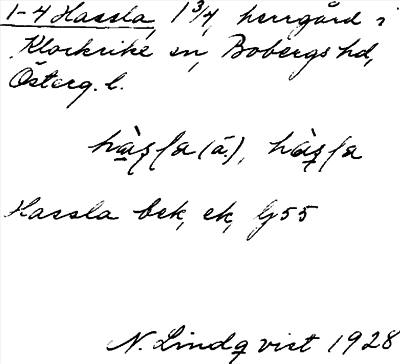 1-4 Hassla, 1 3/4, herrgård i
Klockrike sn, Bobergs hd,
Österg. l.
hàsla (ä.), hàsla
Hassla bek, ek, lj 55
N. Lindqvist 1928